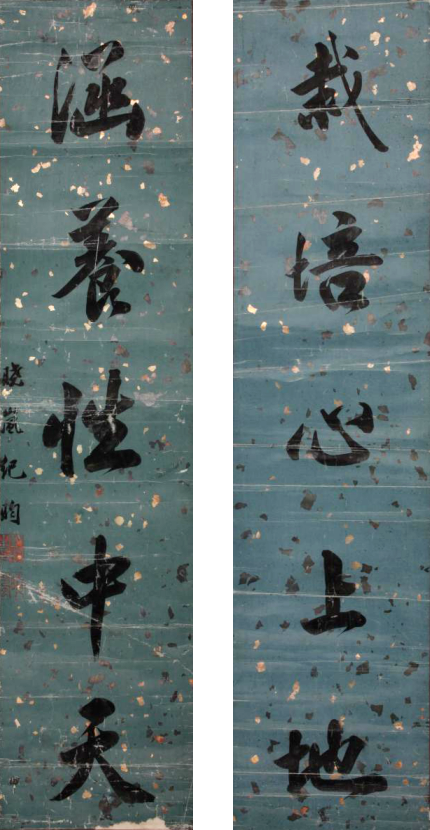 栽培心上地
涵養性中天
曉嵐紀昀